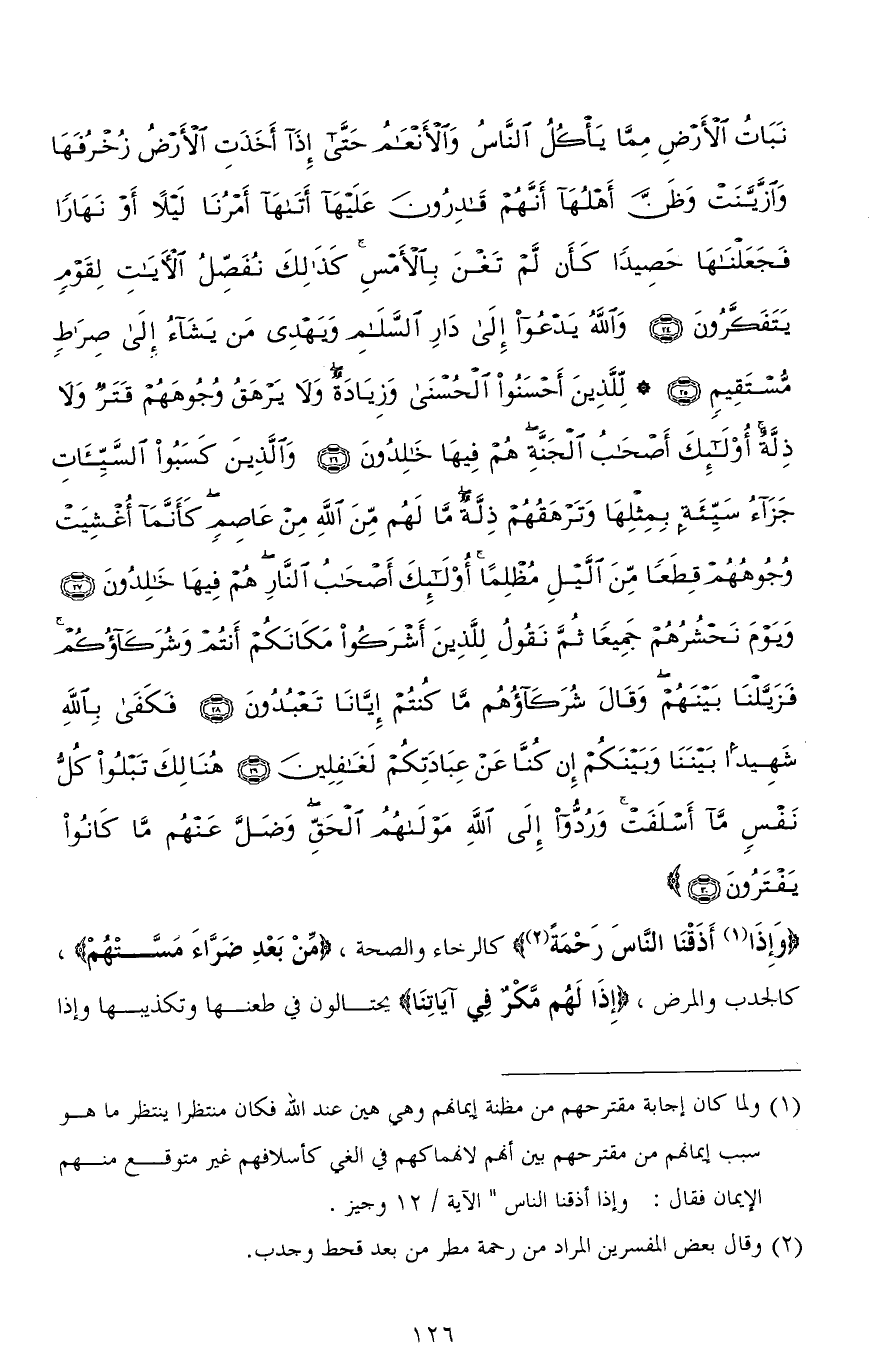 نَبَاتُ ٱلْأَرْضِ مِمَّا يَأْكُلُ ٱلنَّاسُ وَٱلْأَنْعَـٰمُ حَتَّىٰٓ إِذَآ أَخَذَتِ ٱلْأَرْضُ زُخْرُفَهَا
وَٱزَّيَّنَتْ وَظَنَّ أَهْلُهَآ أَنَّهُمْ قَـٰدِرُونَ عَلَيْهَآ أَتَىٰهَآ أَمْرُنَا لَيْلًا أَوْ نَهَارًا
فَجَعَلْنَـٰهَا حَصِيدًا كَأَن لَّمْ تَغْنَ بِٱلْأَمْسِ ۚ كَذَٰلِكَ نُفَصِّلُ ٱلْأَيَـٰتِ لِقَوْمٍ
يَتَفَكَّرُونَ ﴿٢٤﴾ وَٱللَّهُ يَدْعُوٓا۟ إِلَىٰ دَارِ ٱلسَّلَـٰمِ وَيَهْدِى مَن يَشَآءُ إِلَىٰ صِرَٰطٍ
مُّسْتَقِيمٍ ﴿٢٥﴾ * لِّلَّذِينَ أَحْسَنُوا۟ ٱلْحُسْنَىٰ وَزِيَادَةٌ ۖ وَلَا يَرْهَقُ وُجُوهَهُمْ قَتَرٌ وَلَا
ذِلَّةٌ ۚ أُو۟لَـٰٓئِكَ أَصْحَـٰبُ ٱلْجَنَّةِ ۖ هُمْ فِيهَا خَـٰلِدُونَ ﴿٢٦﴾ وَٱلَّذِينَ كَسَبُوا۟ ٱلسَّيِّـَٔاتِ
جَزَآءُ سَيِّئَةٍۭ بِمِثْلِهَا وَتَرْهَقُهُمْ ذِلَّةٌ ۖ مَّا لَهُم مِّنَ ٱللَّهِ مِنْ عَاصِمٍ ۖ كَأَنَّمَآ أُغْشِيَتْ
وُجُوهُهُمْ قِطَعًا مِّنَ ٱلَّيْلِ مُظْلِمًا ۚ أُو۟لَـٰٓئِكَ أَصْحَـٰبُ ٱلنَّارِ ۖ هُمْ فِيهَا خَـٰلِدُونَ ﴿٢٧﴾
وَيَوْمَ نَحْشُرُهُمْ جَمِيعًا ثُمَّ نَقُولُ لِلَّذِينَ أَشْرَكُوا۟ مَكَانَكُمْ أَنتُمْ وَشُرَكَآؤُكُمْ ۚ
فَزَيَّلْنَا بَيْنَهُمْ ۖ وَقَالَ شُرَكَآؤُهُم مَّا كُنتُمْ إِيَّانَا تَعْبُدُونَ ﴿٢٨﴾ فَكَفَىٰ بِٱللَّهِ
شَهِيدًۢا بَيْنَنَا وَبَيْنَكُمْ إِن كُنَّا عَنْ عِبَادَتِكُمْ لَغَـٰفِلِينَ ﴿٢٩﴾ هُنَالِكَ تَبْلُوا۟ كُلُّ
نَفْسٍ مَّآ أَسْلَفَتْ ۚ وَرُدُّوٓا۟ إِلَى ٱللَّهِ مَوْلَىٰهُمُ ٱلْحَقِّ ۖ وَضَلَّ عَنْهُم مَّا كَانُوا۟
يَفْتَرُونَ ﴿٣٠﴾ ﴾
﴿وَإِذَا(١) أَذَقْنَا النَّاسَ رَحْمَةً(٢)﴾ كالرخاء والصحة ، ﴿مِّنْ بَعْدِ ضَرَّاءَ مَسَّتْهُمْ﴾ ،
كالجدب والمرض ، ﴿إِذَا لَهُم مَّكْرٌ فِي آيَاتِنَا﴾ يحتالون في طعنها وتكذيبها وإذا
(١) ولما كان إجابة مقترحهم من مظنة إيمانهم وهي هين عند الله فكان منتظرا ينتظر ما هو
سبب إيمانهم من مقترحهم بين أنهم لانهماكهم في الغي كأسلافهم غير متوقع منهم
الإيمان فقال : وإذا أذقنا الناس " الآية / ١٢ وجيز .
(٢) وقال بعض المفسرين المراد من رحمة مطر من بعد قحط وجدب.
١٢٦